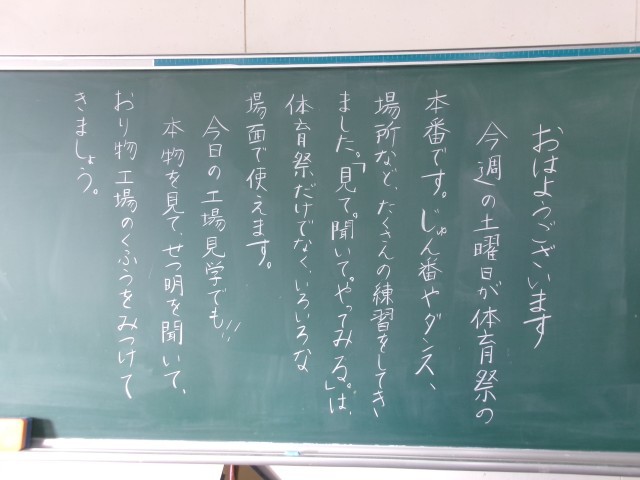 おはようございます
今週の土曜日が体育祭の
本番です。じゅん番やダンス、
場所など、たくさんの練習をしてき
ました。「見て。聞いて。やってみる。」は、
体育祭だけでなく、いろいろな
場面で使えます。
今日の工場見学でも!!
本物を見て、せつ明を聞いて、
おり物工場のくふうをみつけて
きましょう。